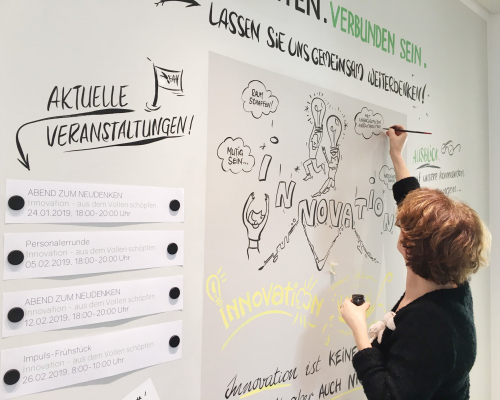 TEN. VERBUNDEN SEIN.
LASSEN SIE UNS GEMEINSAM WEITERDENKEN!
AKTUELLE
VERANSTALTUNGEN!
ABEND ZUM NEUDENKEN
Innovation - aus dem Vollen schöpfen
24.01.2019, 18:00-20:00 Uhr
Personalerrunde
Innovation - aus dem Vollen schöpfen
05.02.2019, 18:00-20:00 Uhr
ABEND ZUM NEUDENKEN
Innovation - aus dem Vollen schöpfen
12.02.2019, 18:00-20:00 Uhr
Impuls-Frühstück
Innovation - aus dem Vollen schöpfen
26.02.2019, 8:00-10:00 Uhr
RAUM
SCHAFFEN!
MUTIG
SEIN...
INNOVATION
INNOVATION
Innovation ist KEINE
ABER AUCH
AUSBLICK